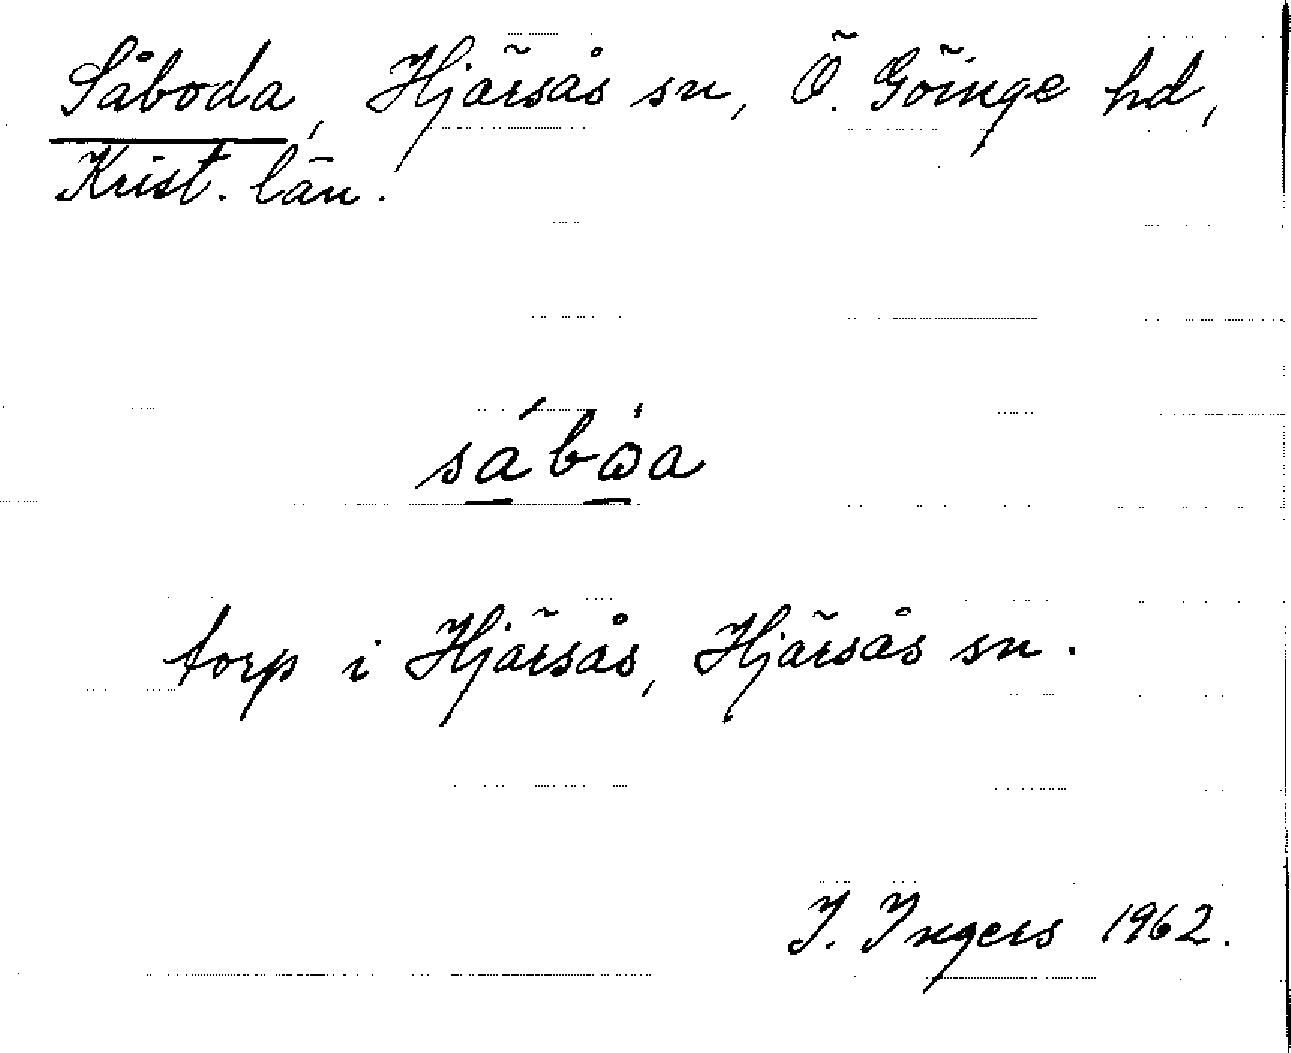 Såboda, Hjärsås sn, Ö. Göinge hd,
Krist. län.
sábω̇a
torp i Hjärsås, Hjärsås sn.
I. Ingers 1962.